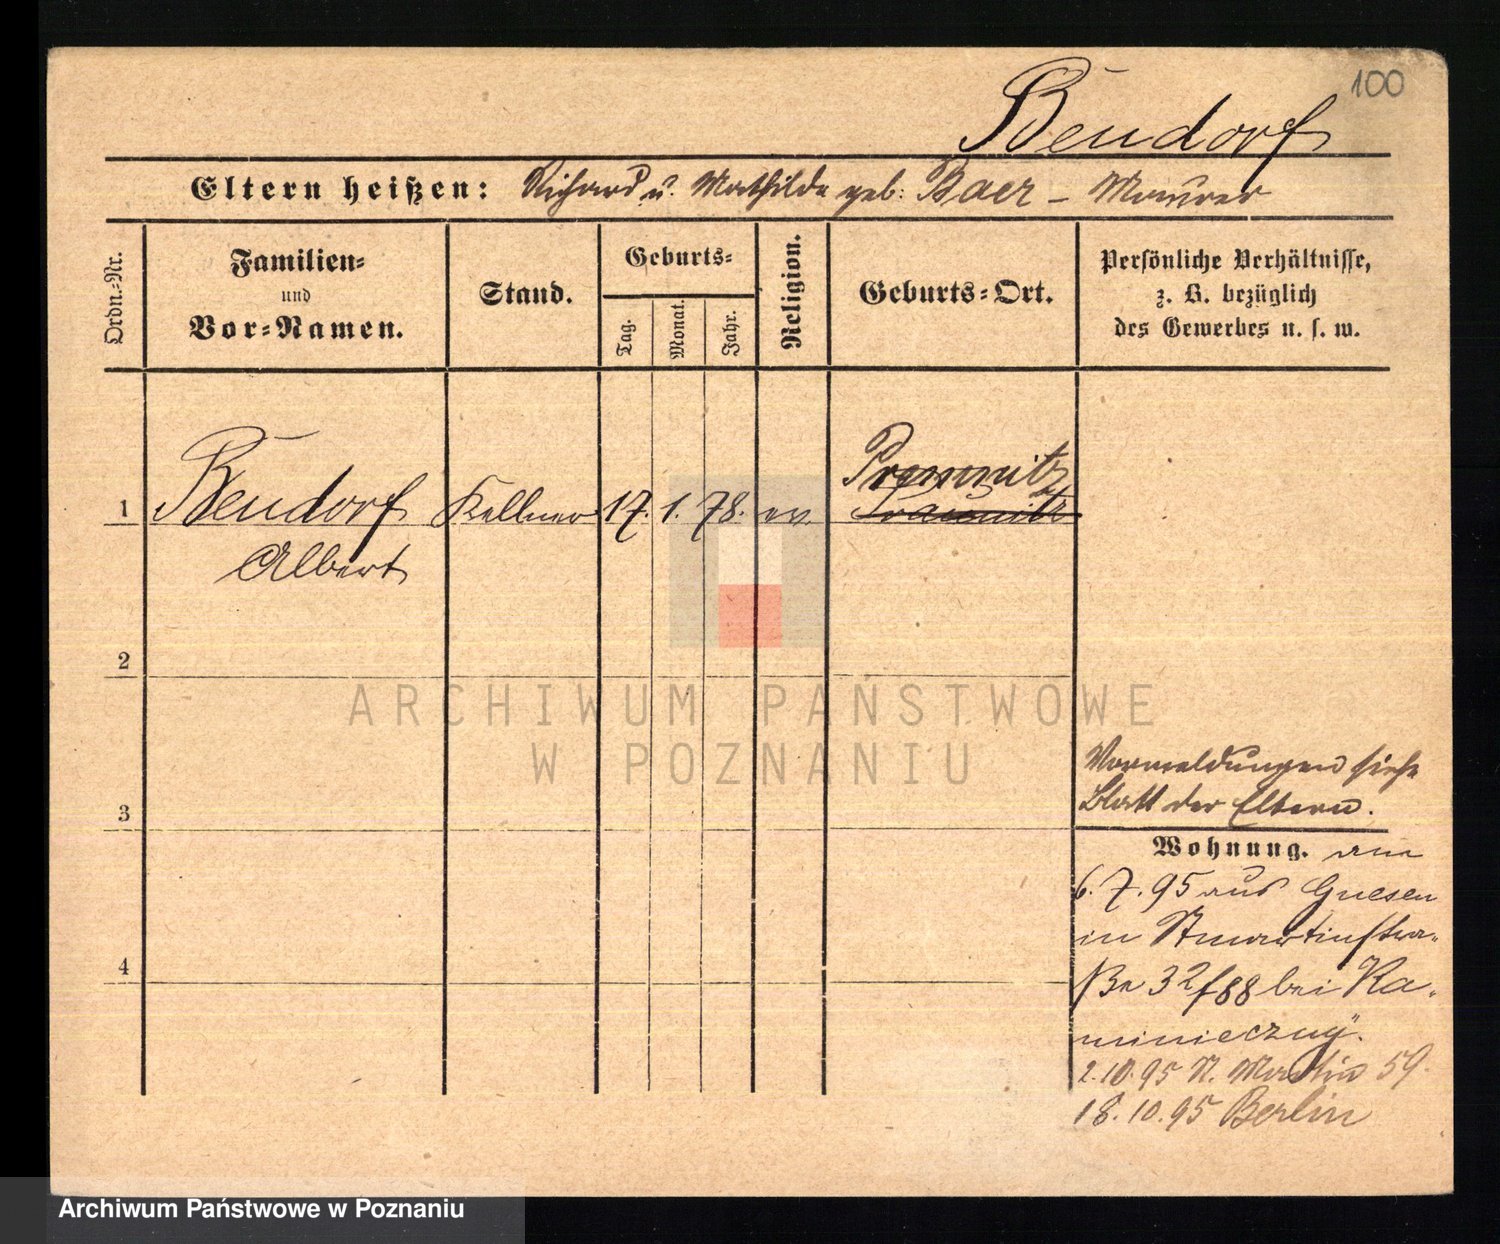 100
Bendorf
Eltern heißen: Richard u. Mathilde geb: Baer – Maurer
Ordn.-Nr.
Familien-
und
Vor-Namen.
Stand.
Geburts-
Tag.
Monat.
Jahr.
Religion.
Geburts-Ort.
Persönliche Verhältnisse,
z. B. bezüglich
des Gewerbes u. s. w.
Promnitz
1 Bendorf Kellner 17. 1. 78. ev.
Albert
2
3
4
Vormeldungen siehe
Blatt der Eltern.
Wohnung. am
6. 7. 95 aus Gnesen
in St martinstra-
ße 32 bei Ka-
2.10.95 St. Martin 59.
18.10.95 Berlin
ARCHIWUM PAŃSTWOWE
W POZNANIU
Archiwum Państwowe w Poznaniu